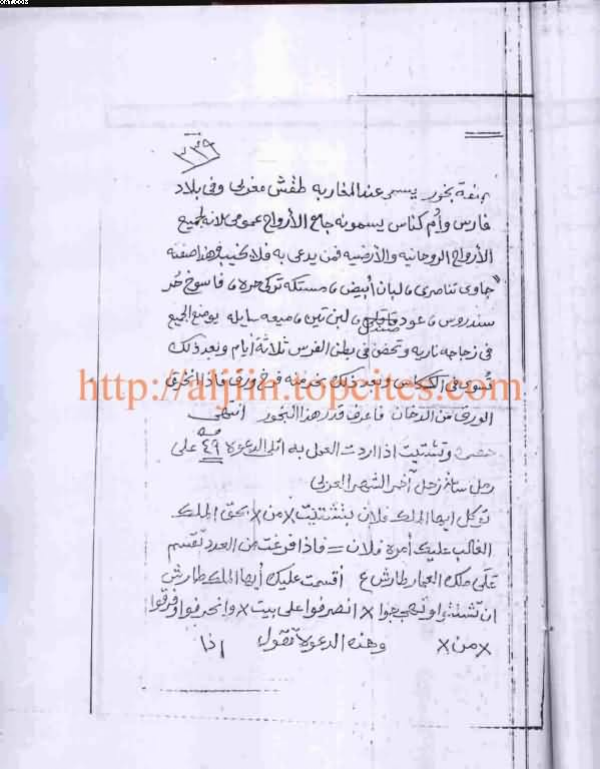 ٣٣٩
صفة بخور يسمى عند المغاربة طفش مغربي وفي بلاد
فارس وأم كناس يسمونه جامع الأرواح عمومي لانه لجميع
الأرواح الروحانيه والأرضيه فمن يدعى به فلا يخيب وهذا صفته
جاوى تناصرى، لبان أبيض، مستكه تركي حره، فاسوخ حُر
سندروس، عود قاقلي، لبن تين، ميعه سايله يوضع الجميع
في زجاجه ناريه وتحفن في بطن الفرس ثلاثة أيام وبعد ذلك
تُسوى في الشمس وبعد ذلك بخر منه فرخ ورق فاذا انخرق
الورق من الدخان فاعرف قدر هذا البخور انتهى
وتشتيت اذا اردت العمل به اتلى الدعوة ٤٩ مره على
رمل ساعة زحل آخر الشهر العربي
توكل ايها الملك فلان بتشتيت × من × بحق الملك
الغالب عليك أمره فلان = فاذا فرغت من العدد تقسم
على ملك العمار طارش ع أقسمت عليك أيها الملك طارش
ان تشتتوا وتهججوا × انصرفوا على بيت × وانحرفوا وفرقوا
× من × وهذه الدعوة تقول اذا
http://aljiin.topcites.com